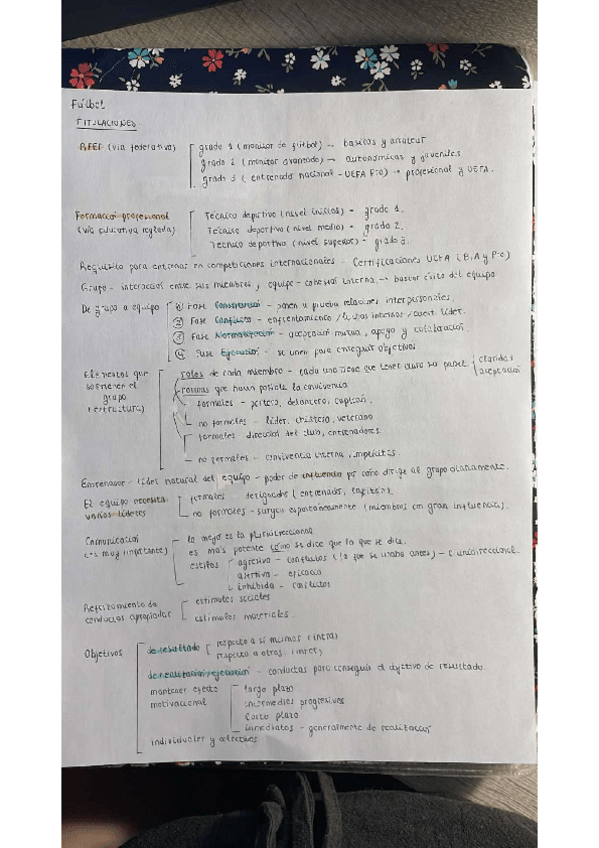 Fútbol
TITULACIONES
RFEF (vía federativa)
grado 1 (monitor de fútbol) → básicas y amateur
grado 2 (monitor avanzado) → autonómicas y juveniles
grado 3 (entrenador nacional - UEFA Pro) → profesional y UEFA.
Formación profesional
(vía educativa reglada)
Técnico deportivo (nivel inicial) = grado 1.
Técnico deportivo (nivel medio) = grado 2.
Técnico deportivo (nivel superior) = grado 3.
Requisito para entrenar en competiciones internacionales - Certificaciones UEFA (B, A y Pro)
Grupo - interacción entre sus miembros, equipo - cohesión interna → buscar éxito del equipo
De grupo a equipo
① Fase - ponen a prueba relaciones interpersonales.
② Fase Conflicto - enfrentamiento / luchas internas / cuest. líder.
③ Fase Normalización - aceptación mutua, apoyo y colaboración.
④ Fase Ejecución - se unen para conseguir objetivos
Elementos que
sostienen el
grupo
(estructura)
roles de cada miembro - cada uno tiene que tener claro su papel
claridad
aceptación
normas que hacen posible la convivencia
formales - portero, delantero, capitán.
no formales - líder, chistoso, veterano
formales - dirección del club, entrenadores.
no formales - convivencia interna, implícitas.
Entrenador - líder natural del equipo - poder de influencia por cómo dirige al grupo diariamente.
El equipo necesita
varios líderes
formales - designados (entrenador, capitán).
no formales - surgen espontáneamente (miembros con gran influencia).
Comunicación
(es muy importante)
la mejor es la pluridireccional
es más potente cómo se dice que lo que se dice.
estilos
agresiva - conflictos (la que se usaba antes) - (unidireccional
asertiva - eficacia
inhibida - conflictos
Reforzamiento de
conductas apropiadas
estímulos sociales
estímulos materiales.
Objetivos
de resultado
respecto a sí mismos (intra)
respecto a otros. (inter)
de realización/ejecución - conductas para conseguir el objetivo de resultado.
mantener efecto
motivacional
largo plazo
intermedios progresivos
corto plazo
inmediatos - generalmente de realización
individuales y colectivos